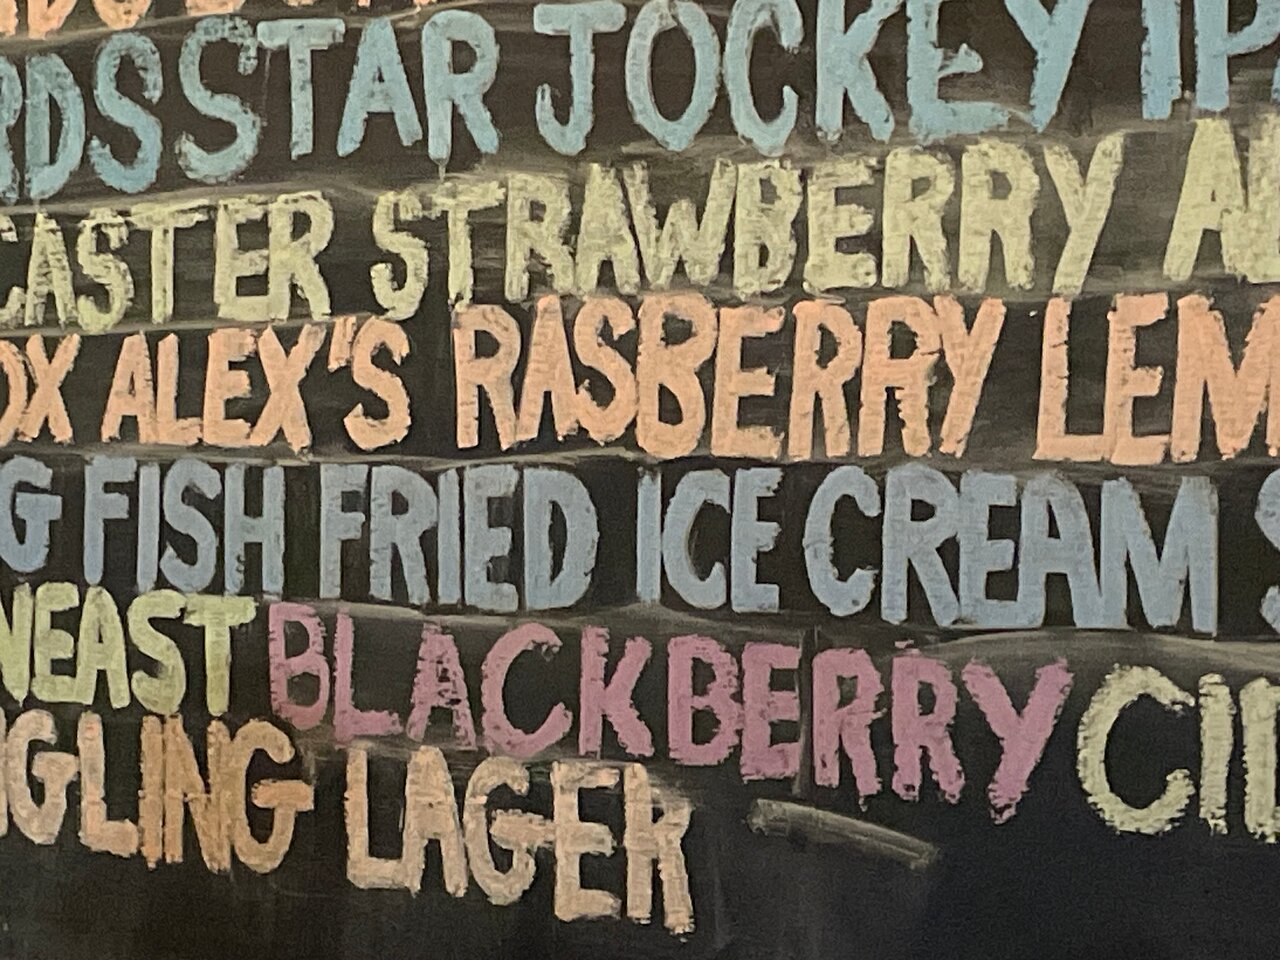 RDS STAR JOCKEY IPA
CASTER STRAWBERRY
OX ALEX'S RASBERRY LEM
G FISH FRIED ICE CREAM S
NEAST BLACKBERRY CID
NGLING LAGER